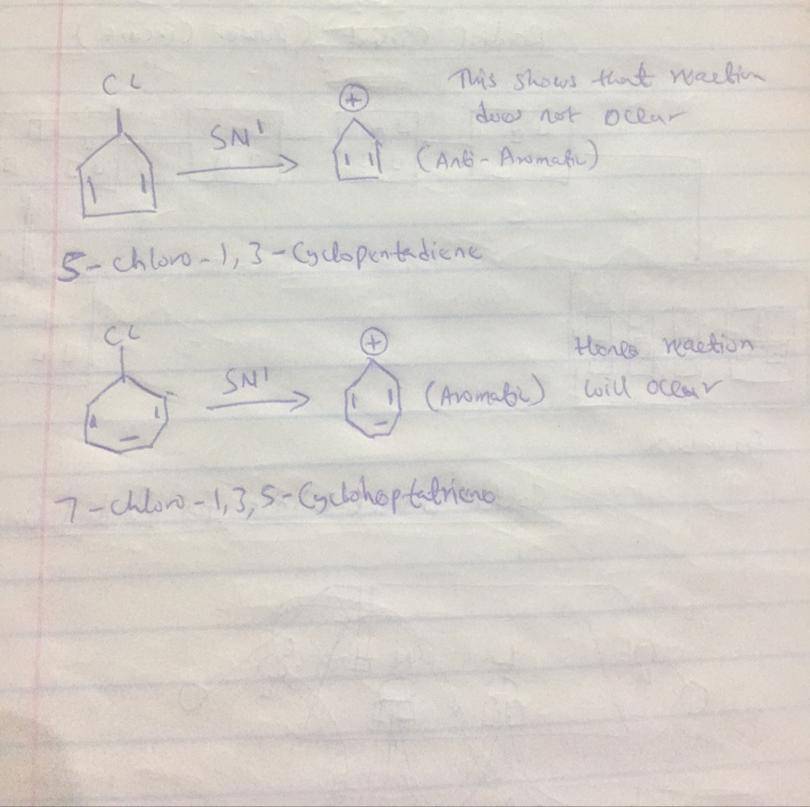 Cl
SN1
+
This shows that reaction
does not occur
(Anti-Aromatic)
5-chloro-1,3-Cyclopentadiene
Cl
SN1
+
(Aromatic)
Hence reaction
will occur
7-chloro-1,3,5-Cycloheptatriene